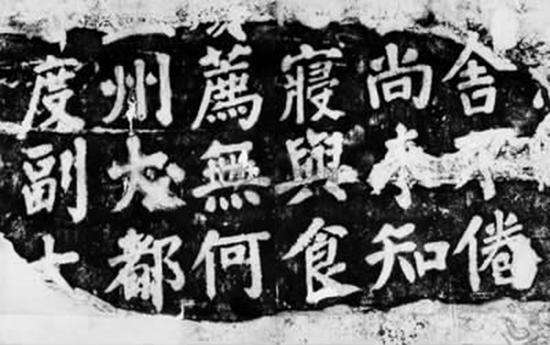 舍不倦
尚未知
寢與食
薦無何
州大都
度副